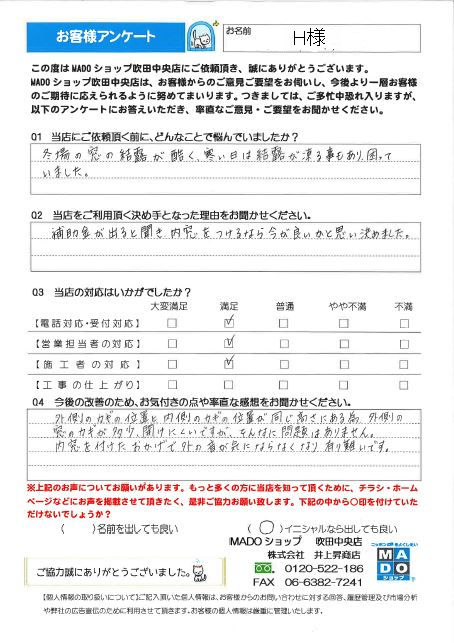 お客様アンケート
お名前
H様
この度はMADOショップ吹田中央店にご依頼頂き、誠にありがとうございます。
MADOショップ吹田中央店は、お客様からのご意見ご要望をお伺いし、今後より一層お客様
のご期待に応えられるように努めてまいります。つきましては、ご多忙中恐れ入りますが、
以下のアンケートにお答えいただき、率直なご意見・ご要望をお聞かせください。
Q1 当店にご依頼頂く前に、どんなことで悩んでいましたか？
冬場の窓の結露が酷く、寒い日は結露が凍る事もあり、困って
いました。
Q2 当店をご利用頂く決め手となった理由をお聞かせください。
補助金が出ると聞き内窓をつけるなら今が良いかと思い決めました。
Q3 当店の対応はいかがでしたか？
大変満足 満足 普通 やや不満 不満
【電話対応・受付対応】 □ ☑ □ □ □
【営業担当者の対応】 □ ☑ □ □ □
【施工者の対応】 □ ☑ □ □ □
【工事の仕上がり】 □ □ □ □ □
Q4 今後の改善のため、お気付きの点や率直な感想をお聞かせください。
外側のカギの位置と内側のカギの位置が同じ高さにある為、外側の
窓のカギが多少、開けにくいですが、そんなに問題はありません。
内窓を付けたおかげで外の音が気にならなくなり有り難いです。
※上記のお声についてお願いがあります。もっと多くの方に当店を知って頂くために、チラシ・ホーム
ページなどにお声を掲載させて頂きたく、是非ご協力お願い致します。下記の中から〇印を付けていた
だけないでしょうか？
（ ）名前を出しても良い （〇）イニシャルなら出しても良い
MADOショップ 吹田中央店
株式会社 井上昇商店
0120-522-186
FAX 06-6382-7241
ご協力誠にありがとうございました。
ニッポンの窓をよくしたい
MADO
ショップ
【個人情報の取り扱いについて】ご記入頂いた個人情報は、お客様からのお問い合わせに対する回答、履歴管理及び市場分析
や弊社の広告宣伝のために利用させて頂きます。お客様の個人情報は厳重に管理いたします。